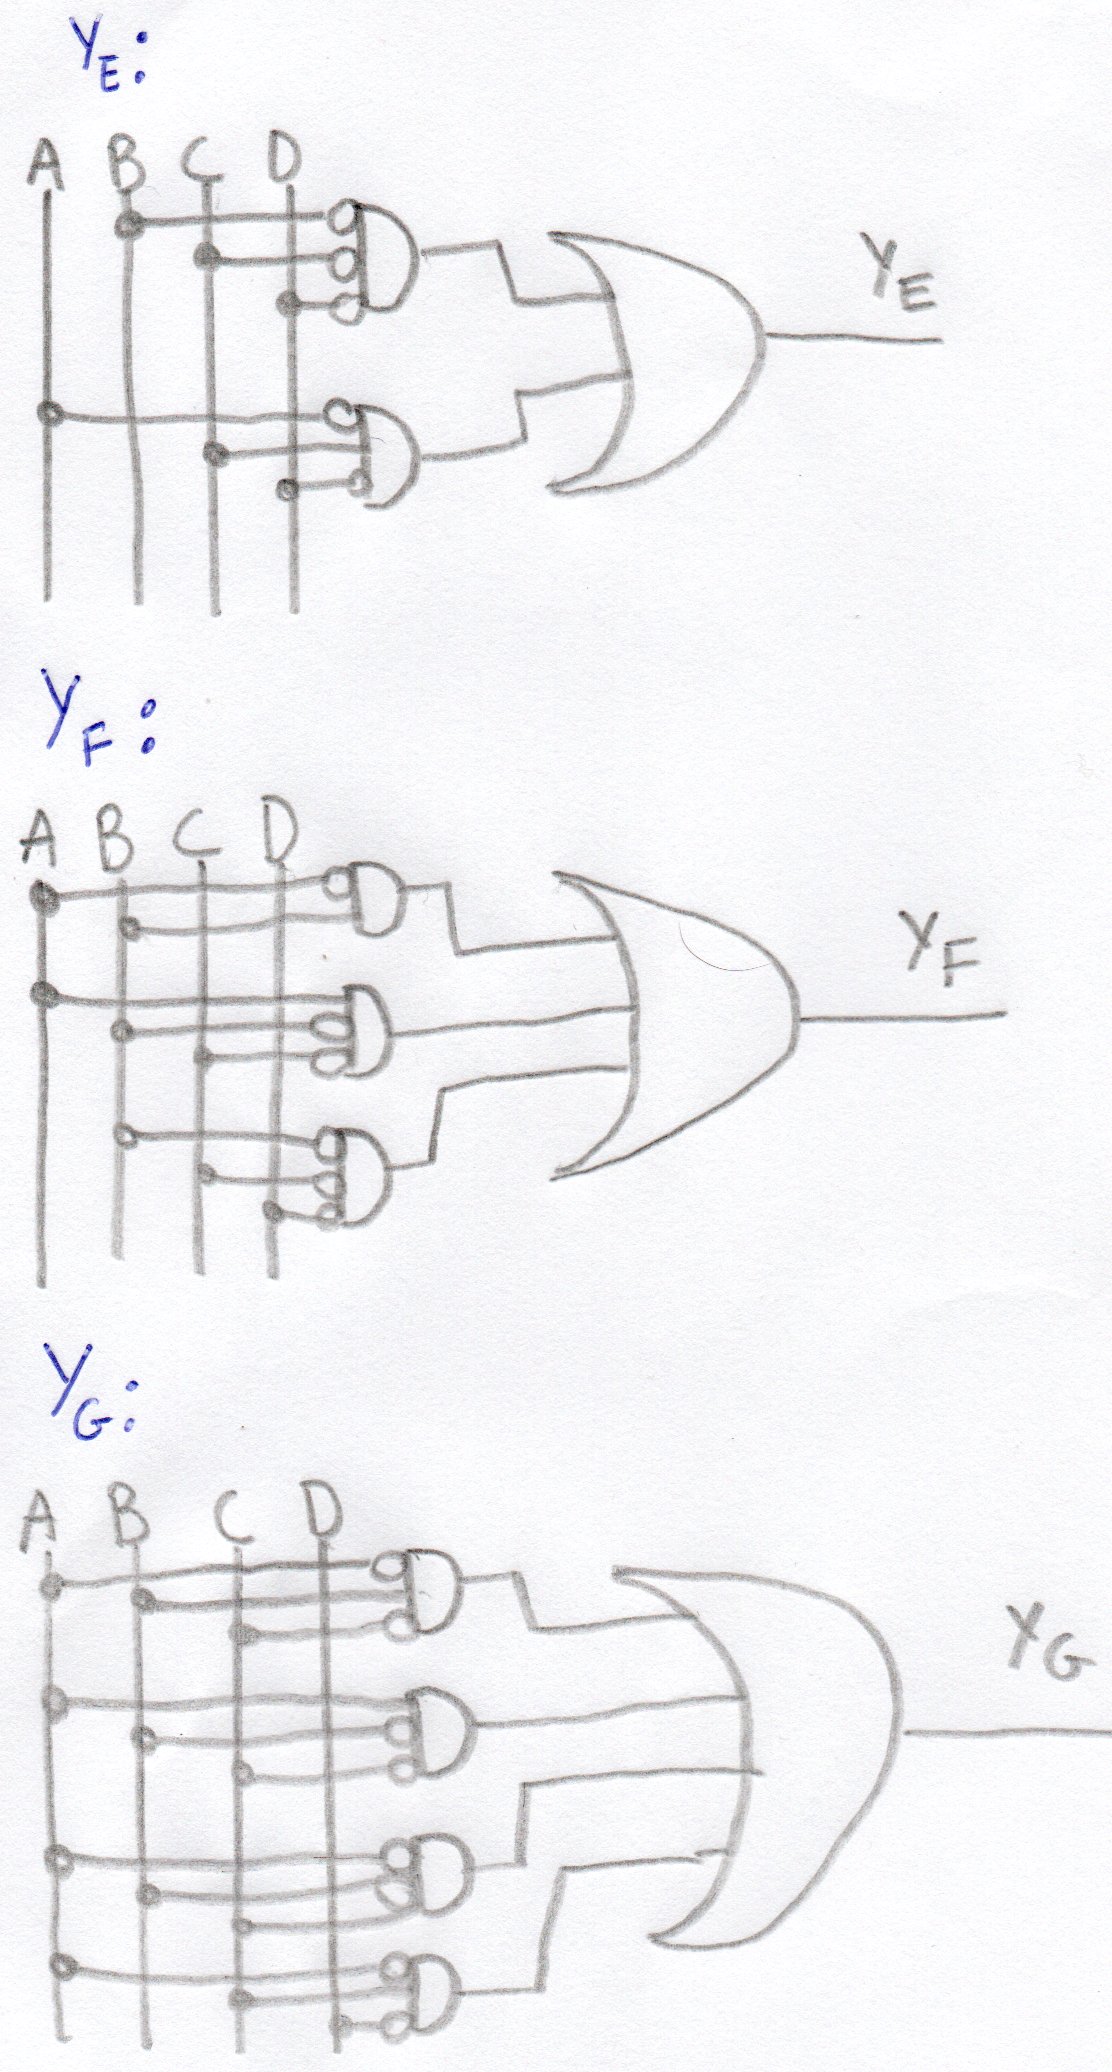 Y_E:
A B C D
Y_E
Y_F:
A B C D
Y_F
Y_G:
A B C D
Y_G